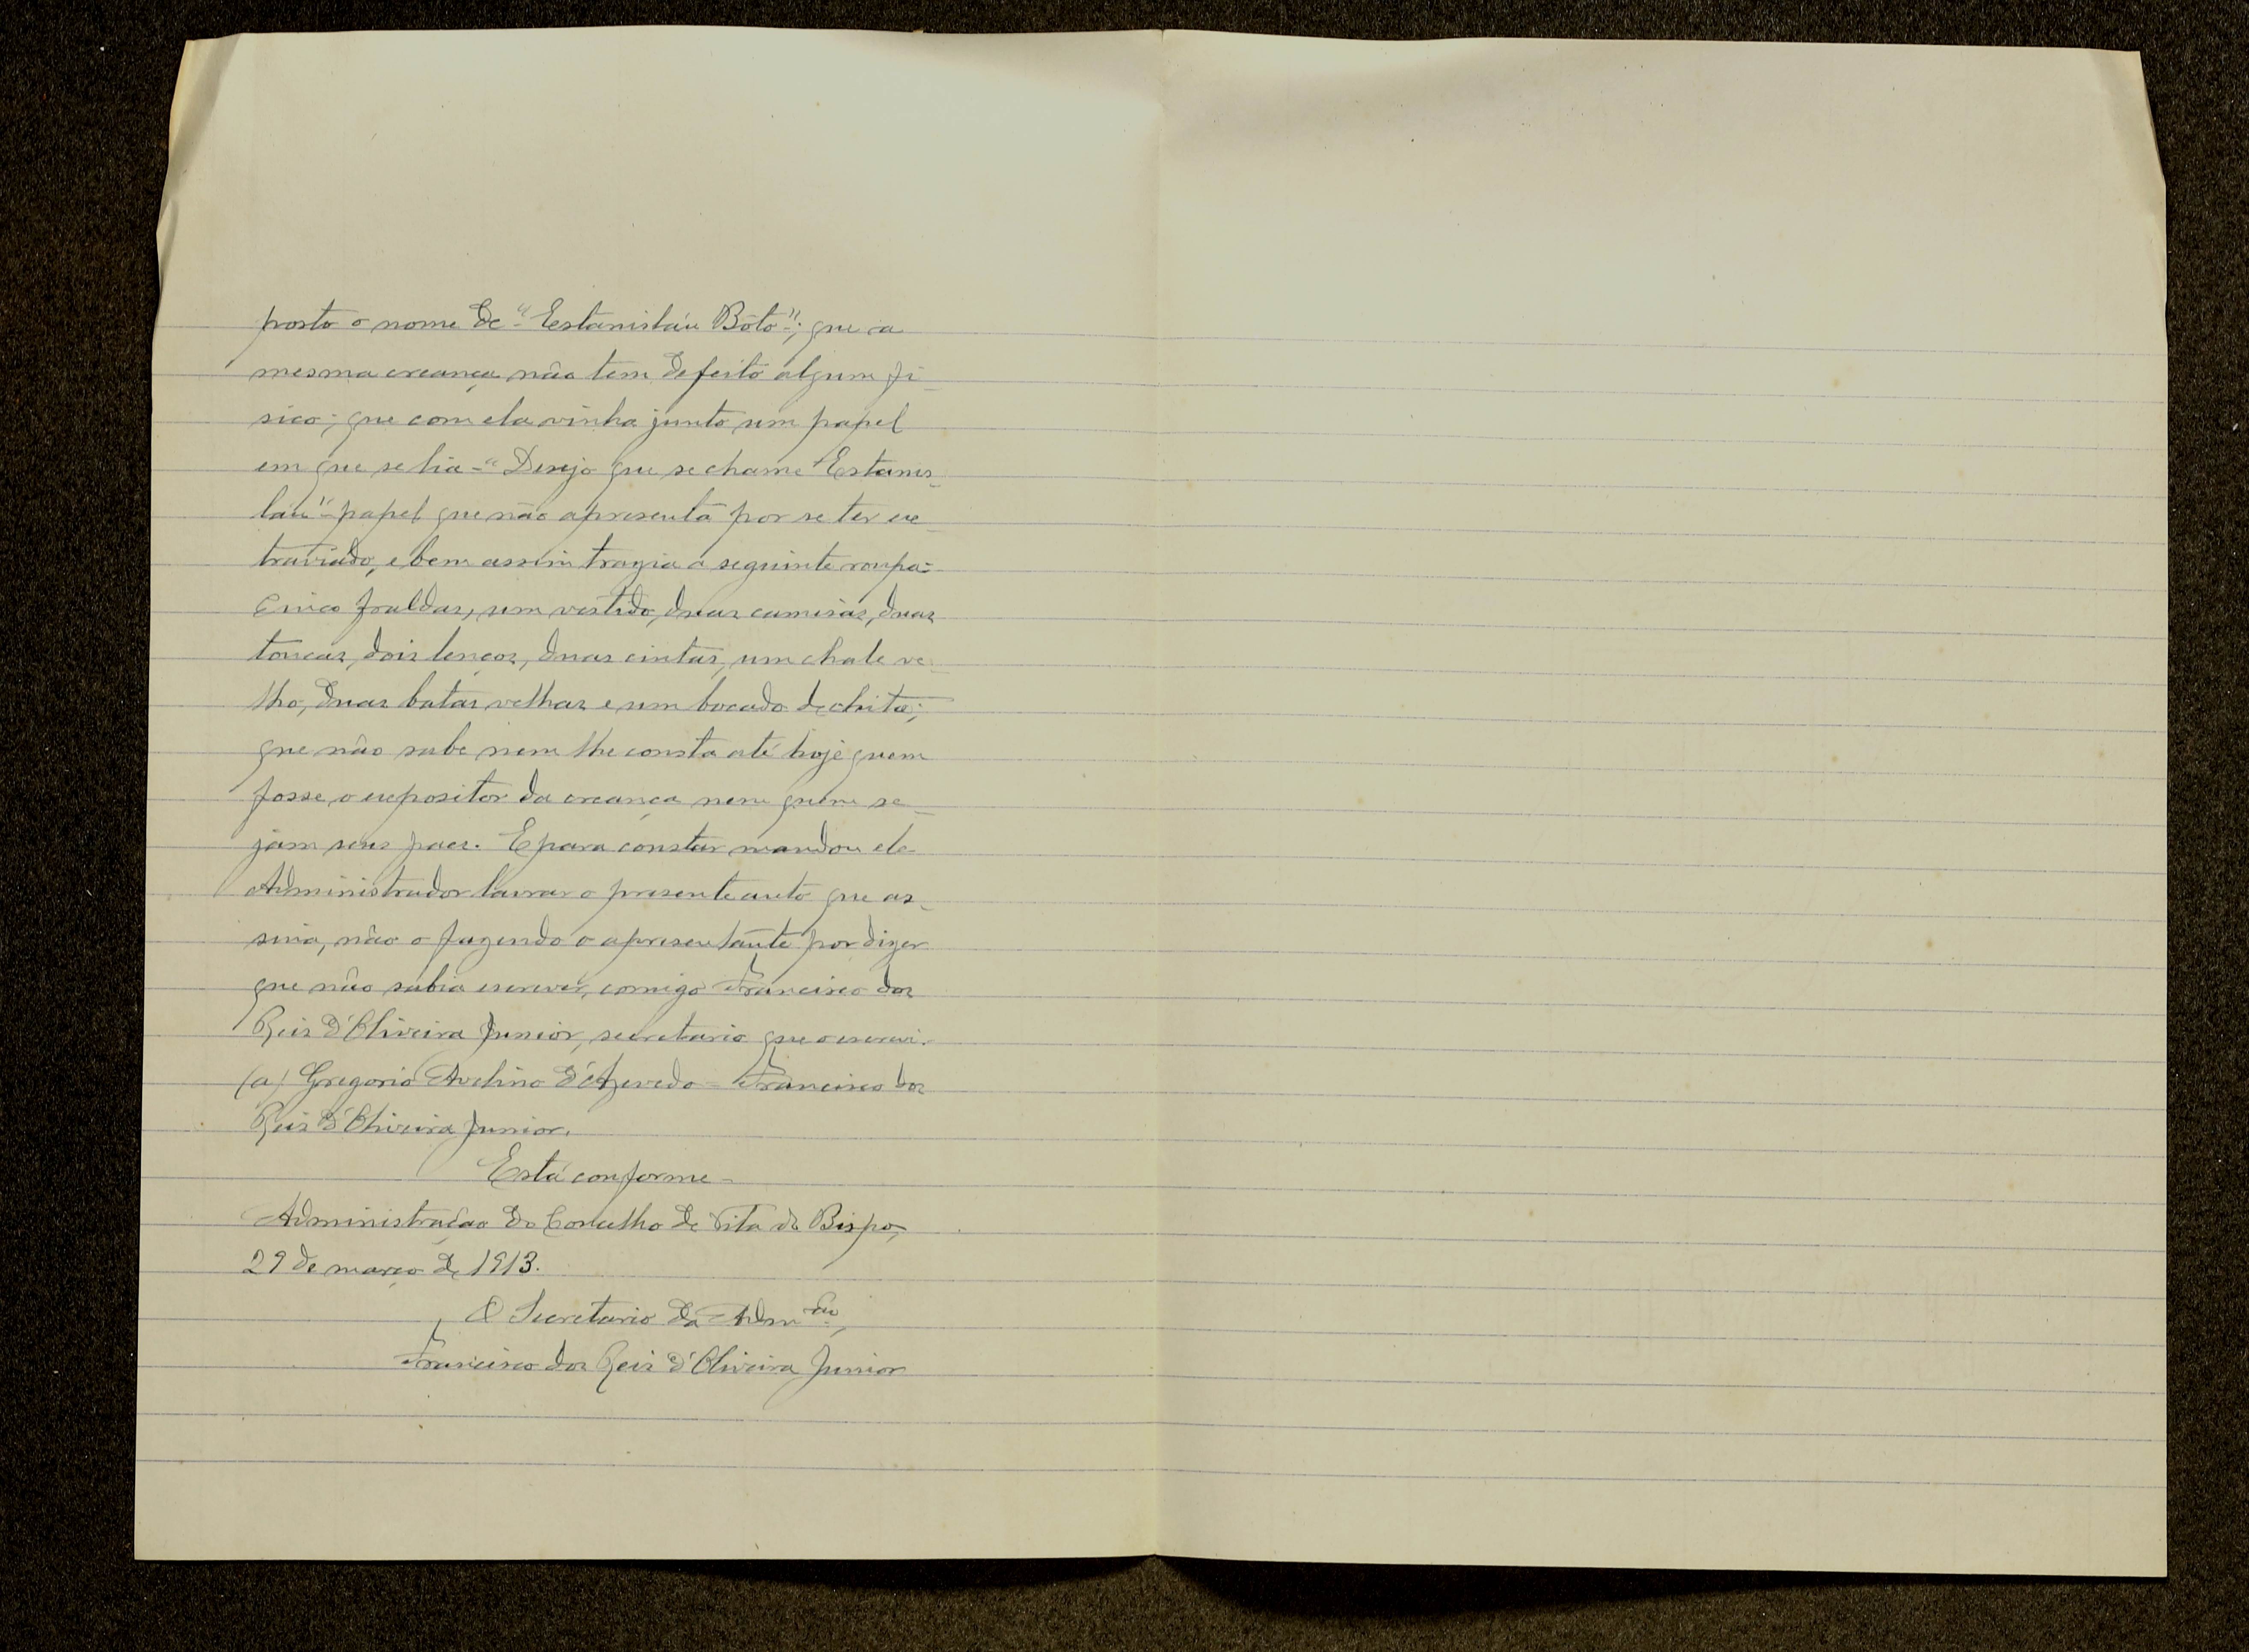 posto o nome de-"Estanisláu Bôto"-; que a
mesma creança não tem defeito algum fi-
sico; que com ela vinha junto um papel
em que se lia-"Desejo que se chame Estanis-
láu"-papel que não apresenta por se ter ex-
traviado, e bem assim trazia a seguinte roupa:-
Cinco fraldas, um vestido, duas camisas, duas
toucas, dois lenços, duas cintas, um chale ve-
lho, duas batas velhas e um bocado de chita;
que não sabe nem lhe consta até hoje quem
fosse o expositor da creança nem quem se-
jam seus paes. E para constar mandou ele
Administrador lavrar o presente auto que as-
sina, não o fazendo o apresentante por dizer
que não sabia escrever, comigo Francisco dos
Reis d'Oliveira Junior, secretario que o escrevi.
(a) Gregorio Avelino d'Azevedo - Francisco dos
Reis d'Oliveira Junior.
Está conforme-
Administração do Concelho de Vila do Bispo,
29 de março de 1913.
O Secretario da Adm.ção,
Francisco dos Reis d'Oliveira Junior